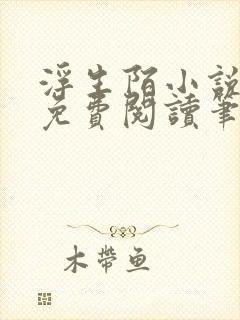 浮生陌小說
免費閱讀筆
木帶魚